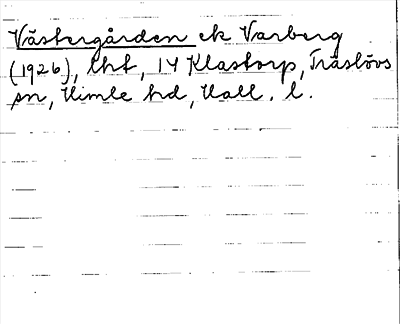 Västergården ek Varberg
(1926), lht, 14 Klastorp, Träslövs
sn, Himle hd, Hall. l.